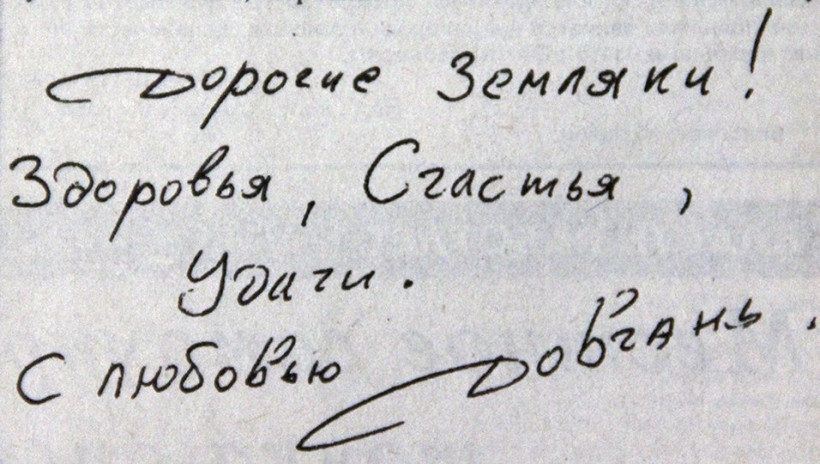 Дорогие Земляки!
Здоровья, Счастья,
Удачи.
С любовью Довгань.